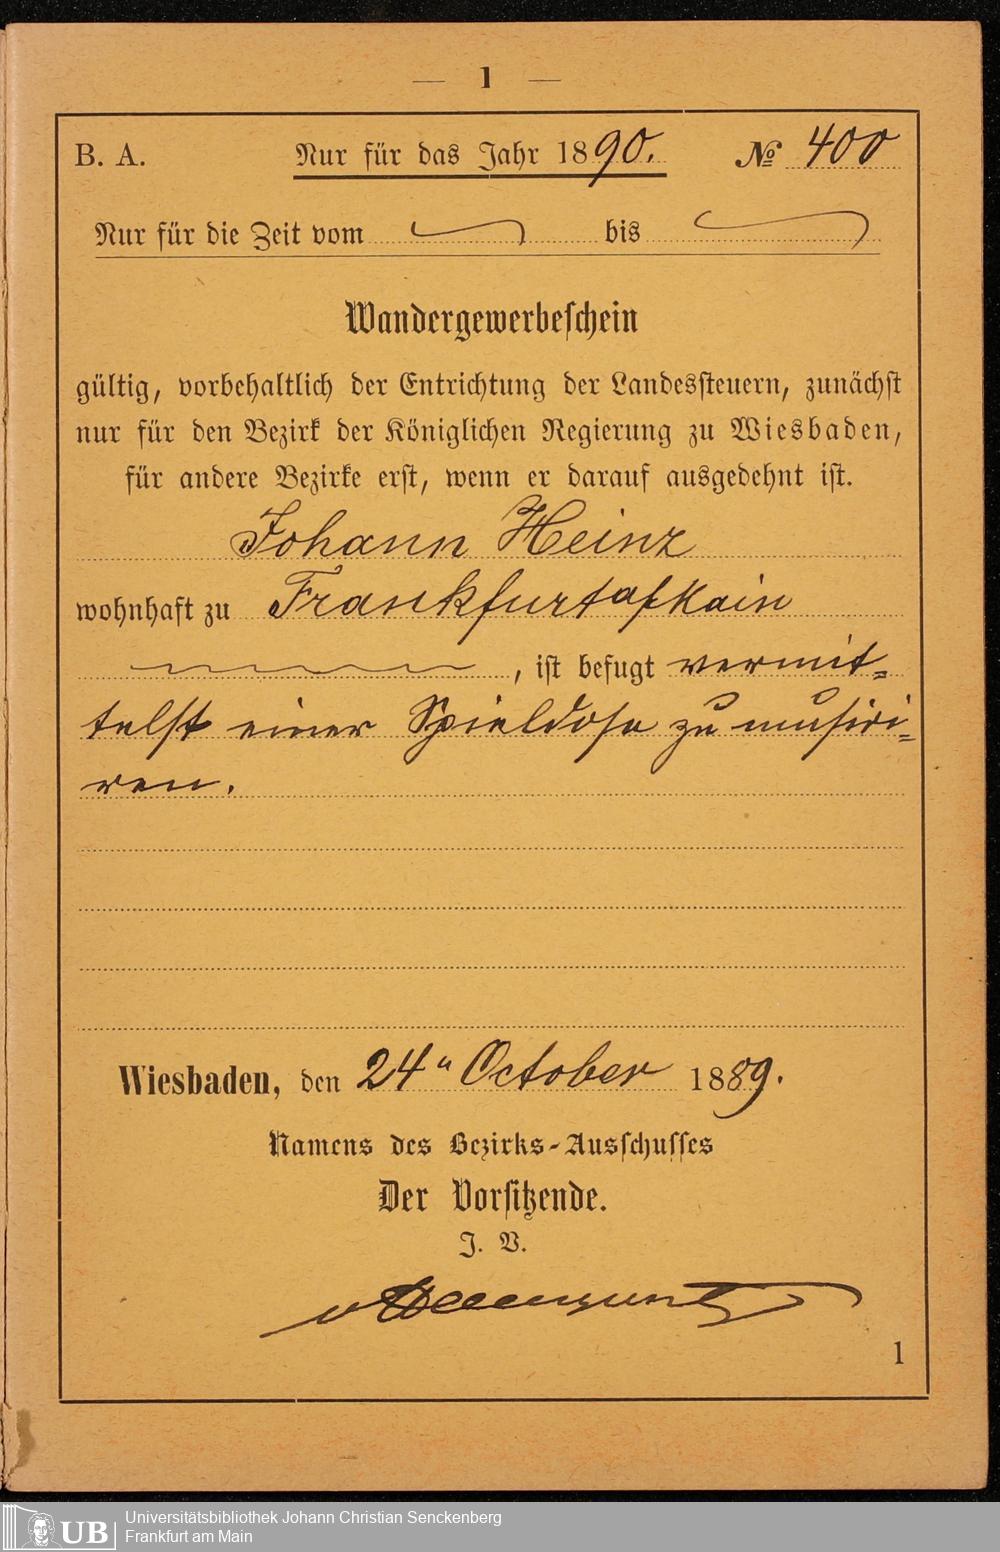 — 1 —
B. A. Nur für das Jahr 1890. № 400
Nur für die Zeit vom bis
Wandergewerbeschein
gültig, vorbehaltlich der Entrichtung der Landessteuern, zunächst
nur für den Bezirk der Königlichen Regierung zu Wiesbaden,
für andere Bezirke erst, wenn er darauf ausgedehnt ist.
Johann Heinz
wohnhaft zu Frankfurt a/Main
, ist befugt vermit-
telst einer Spieldose zu musici-
ren.
Wiesbaden, den 24n October 1889.
Namens des Bezirks-Ausschusses
Der Vorsitzende.
J. V.
1
UB
Universitätsbibliothek Johann Christian Senckenberg
Frankfurt am Main